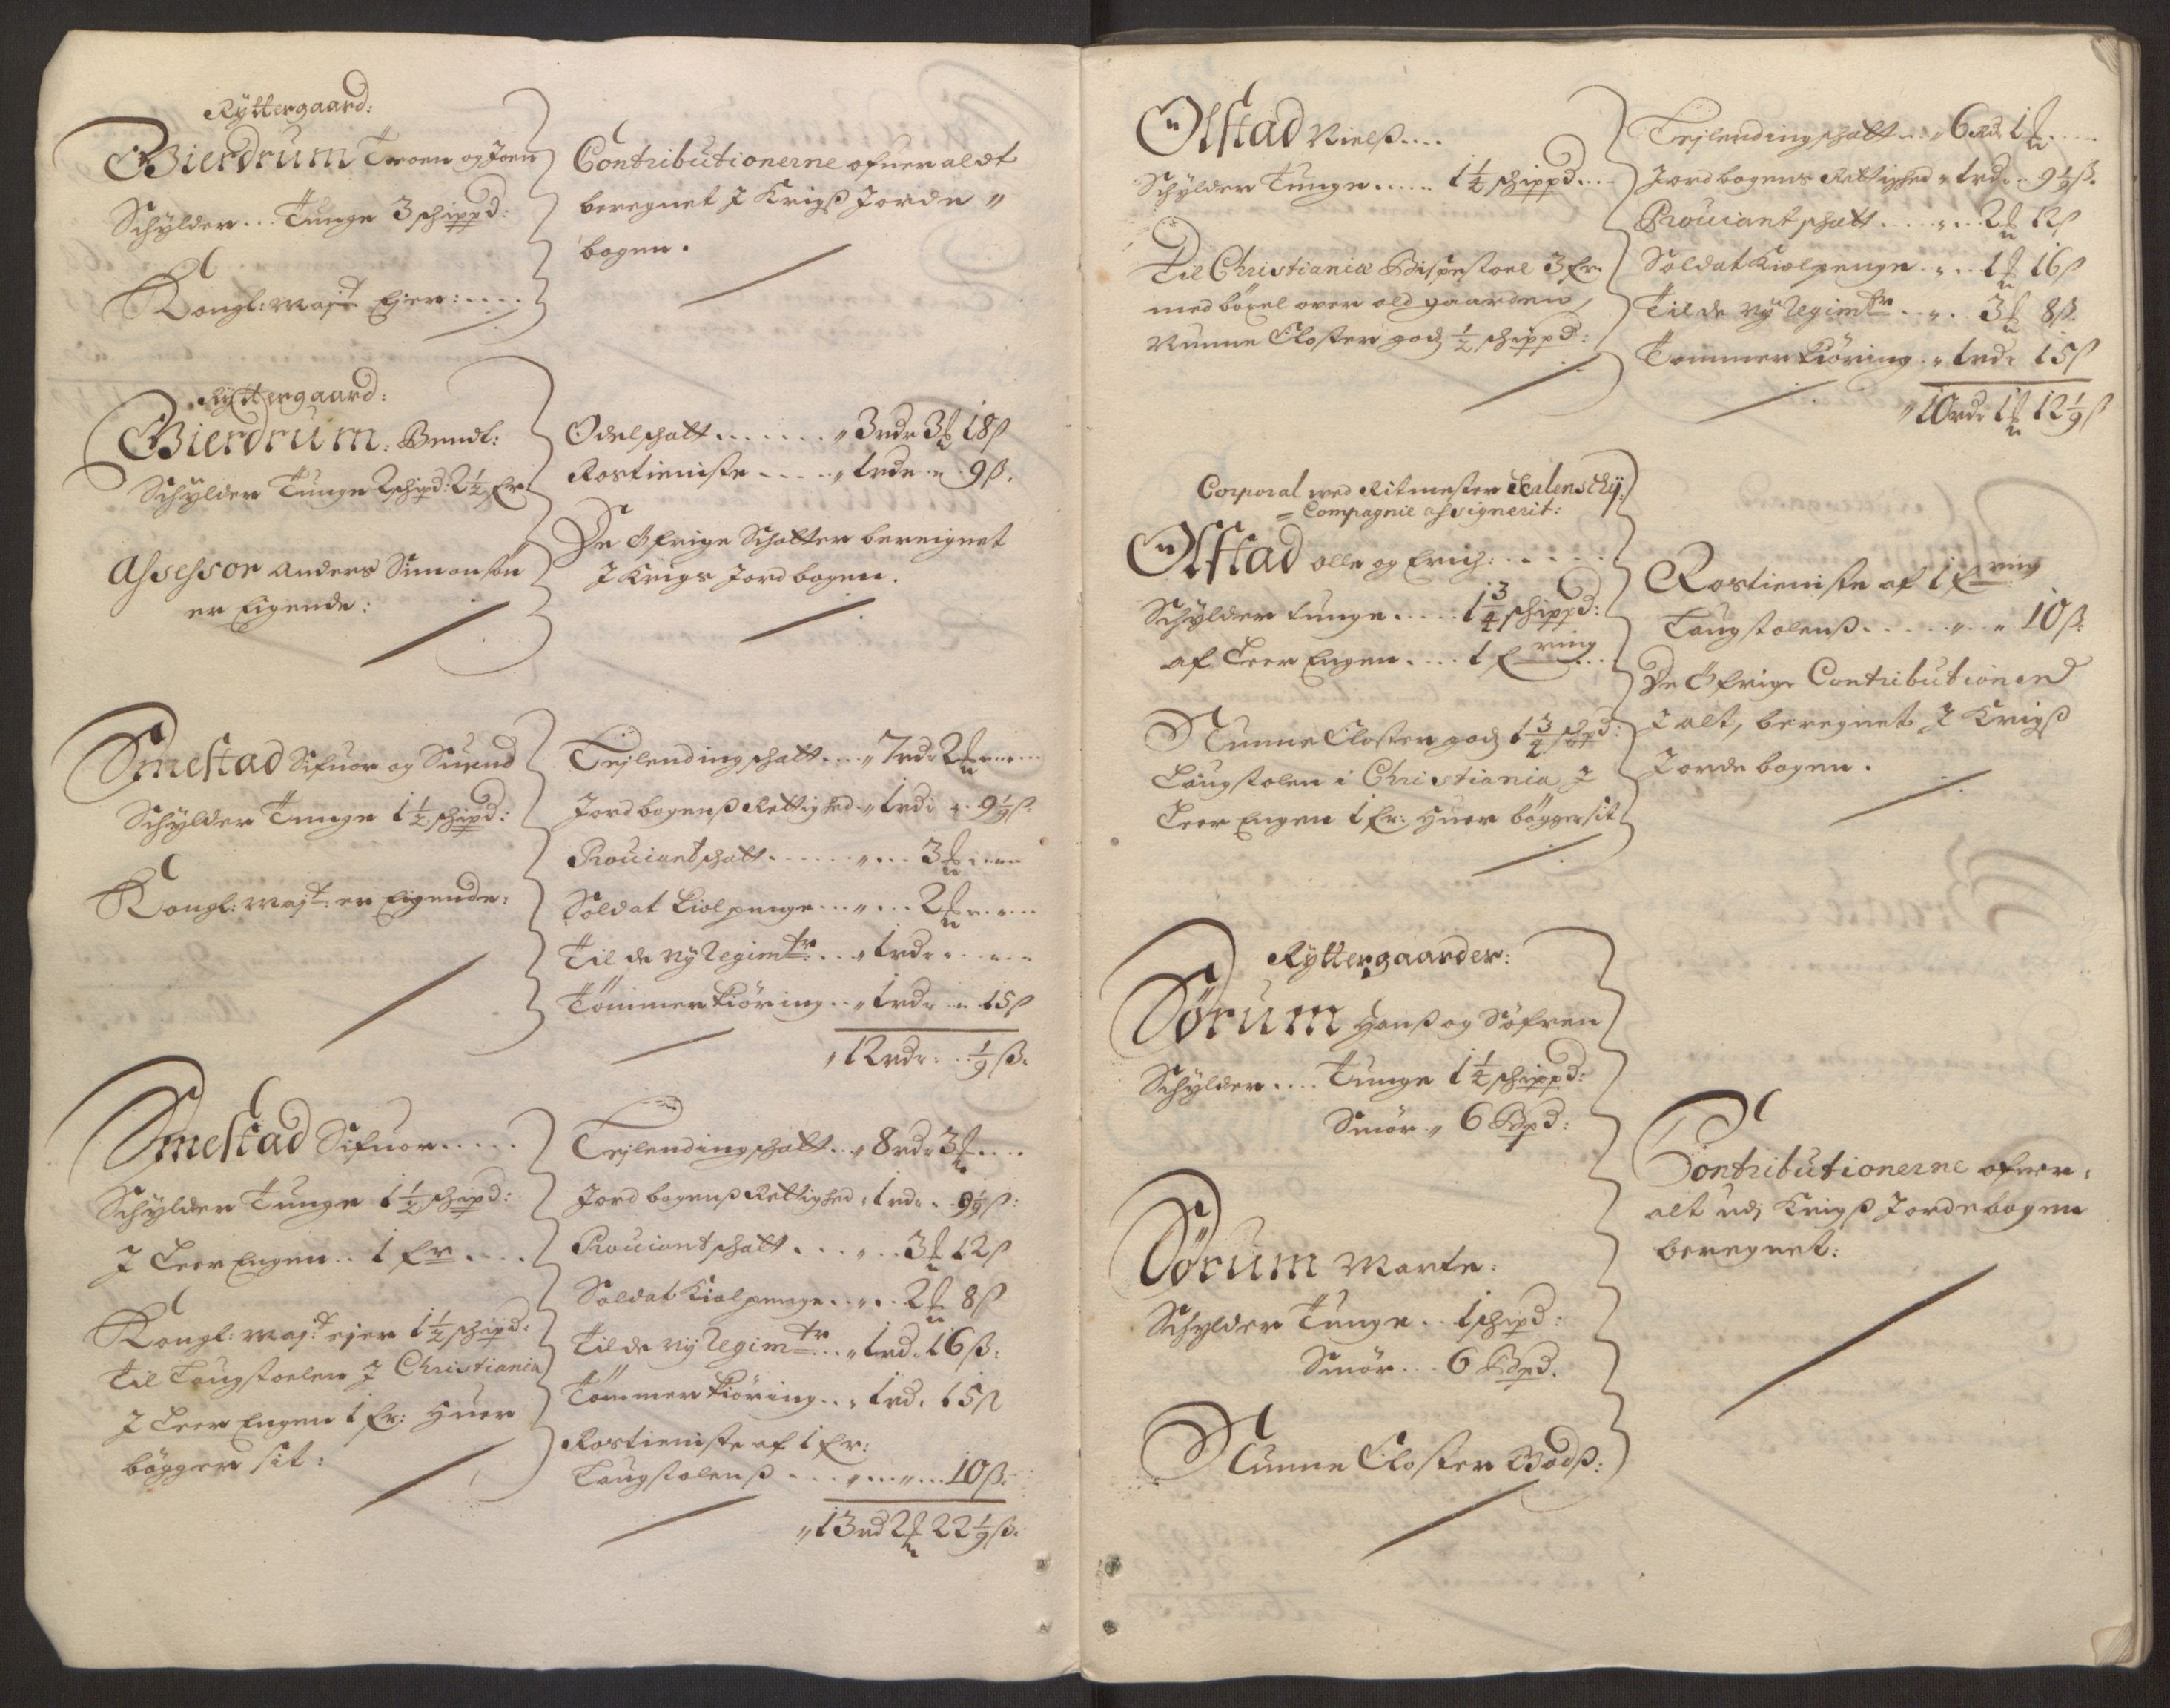 Ryttergaard:
Bierdrum Troen og Joen
Schylder... Tunge 3 schippd:
Kongl: Majt Ejer:....
Contributionerne ofuer aldt
beregnet J Krigß Jorde
bogen.
Ryttergaard:
Bierdrum: Bendt:
Schylder Tunge 2 schipd: 2 1/2 Er.
Assessor Anders Simonsøn
er Eigende:
Odelschatt....... 3 rdr 3 ℔ 18 ß
Rostieniste..... 1 rdr 9 ß.
De Øfrige Schatter bereignet
J Krigs Jordbogen.
Smestad Sifuer og Suend
Schylder Tunge 1 1/2 schipd:
Kongl: Majt: er Eigende:
Tejlending schatt.... 7 rdr 2 ℔
Jordbogenß Rettighed 1 rdr 9 1/9 ß.
Prouiantschatt...... 3 ℔
Soldat Kiolpenge...... 2 ℔
Til de Ny Regimtr... 1 rdr
Tømmer Kiøring.. 1 rdr 15 ß
12 rdr. 1/9 ß.
Smestad Sifuer.....
Schylder Tunge 1 1/2 schipd:
J Leer Engen.. 1 Er....
Kongl: Maj:t ejer 1 1/2 schipd:
Til Laugstoelen J Christiania
J Leer Engen 1 Er: Huer
bøgger sit:
Tejlending schatt.. 8 rdr 3 ℔....
Jordbogenß Rettighed 1 rdr. 9 1/9 ß:
Prouiantschatt...... 3 ℔ 12 ß
Soldat Kiolpenge..... 2 ℔ 8 ß
Til de Ny Regimtr... 1 rd. 16 ß.
Tømmer Kiøring... 1 rd. 15 ß
Rostieniste af 1 Er:
Laugstolenß......... 10 ß.
13 rd 2 ℔ 22 1/9 ß.
Olstad Nielß....
Schylder Tunge..... 1 1/4 schippd....
Til Christianiæ Bispestoel 3 Er.
med bøxel over ald gaarden,
Nunne Closter godz 1/2 schippd:
Tejlending schatt... 6 Rdr 1 ℔....
Jordbogens Rettighed 1 rdr. 9 1/9 ß.
Prouiantschatt...... 2 ℔ 12 ß
Soldat Kiolpenge.... 1 ℔ 16 ß
Til de Ny Regimtr.... 3 ℔ 8 ß.
Tømmer Kiøring. 1 rdr 15 ß
10 rdr 1 ℔ 12 1/9 ß
Corporal wed Ritmester Kalenschÿ:
Compagnie assignerit:
Olstad Olle og Erich:.....
Schylder tunge..... 1 3/4 schippd:
af Leer Engen.... 1 Ering...
Nunne Closter godz 1 3/4 schpd:
Laugstolen i Christiania J
Leer Engen 1 Er: Huer bøgger sit
Rostieniste af 1 Ering
Laugstolenß....... 10 ß.
De Øfrige Contributioner
J alt, beregnet J Krigß
Jordebogen.
Ryttergaarder:
Sørum Hanß og Søfren
Schylder.... Tunge 1 1/4 schippd:
Smør 6 Bpd:
Sørum Marte:
Schylder Tunge.. 1 schipd:
Smør... 6 Bpd.
Nunne Closter Godß:
Contributionerne ofuer
alt udj Krigß Jordebogen
beregnet: